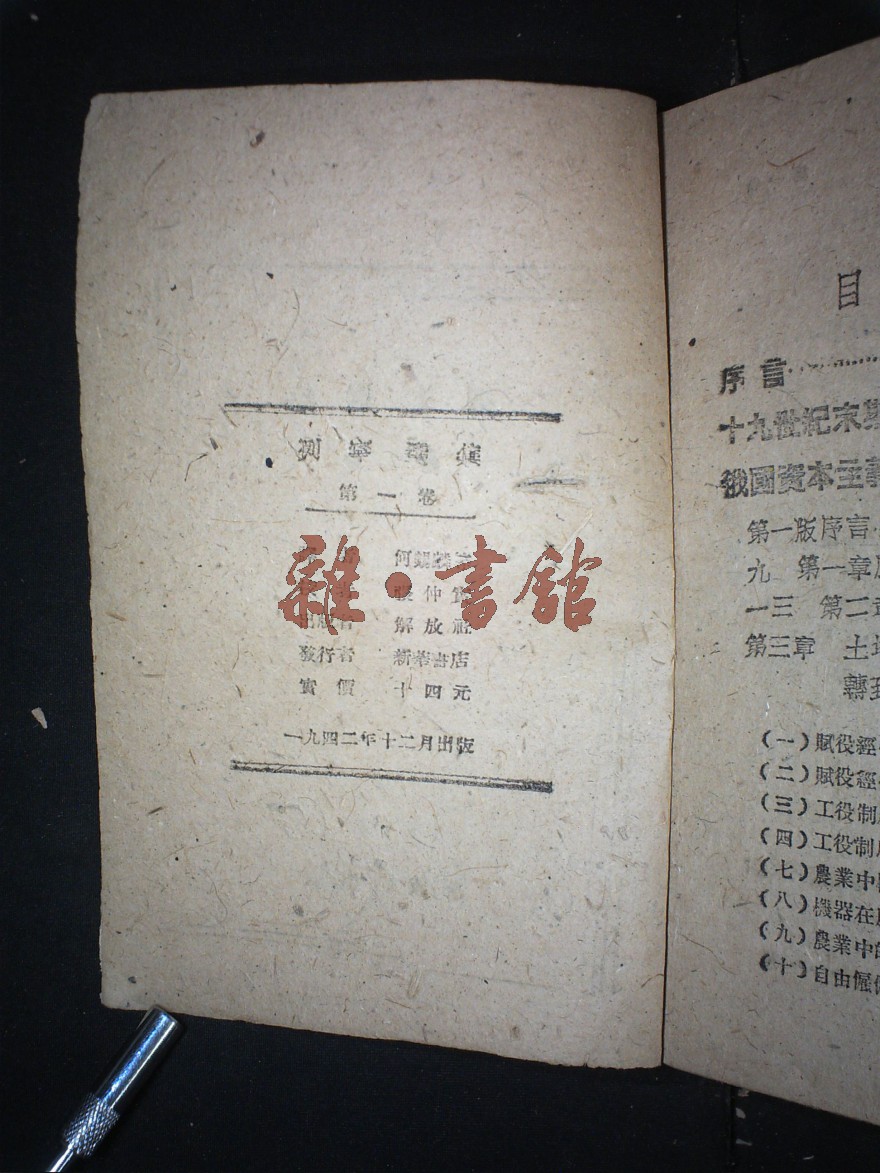 列寧選集
第一卷
何錫麟
張仲實
出版者 解放社
發行者 新華書店
實價 十四元
一九四二年十二月出版
雜·書館
目
序言
十九世紀末
俄國資本主義
第一版序言
九 第一章
一三 第二章
第三章 土地
轉
(一)賦役經
(二)賦役經
(三)工役制
(四)工役制
(七)農業中
(八)機器在
(九)農業中的
(十)自由僱